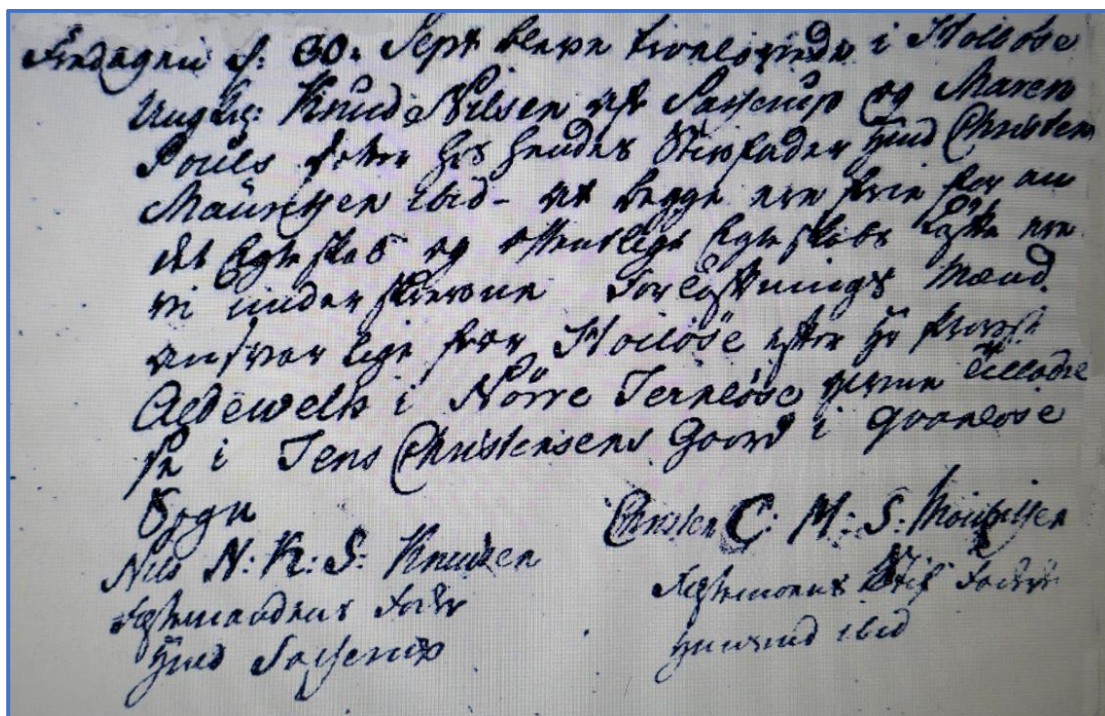 Fredagen d: 30. Sept bleve troelovede i Stollöse
Ungk: Knud Nilsen af Sasserup og Maren
Pouls datter hos hendes Stiffader Huusd Christen
Mauritzen ibid - at begge ere frie for an
det Egteskab og offentlige Egteskabs Löfte ere
vi underskrevne Forlöftnings Mænd
ansvarlige for Stollöse efter Hr
i Nörre Jernlöse
i Jens Christensens Gaard i
Sogn
Nils N: K: S: Knudsen
Christen C: M: S: Mouritzen
Festemandens Fader
Festemoens Stif Fader
Huusd Sasserup
Huusmd ibid